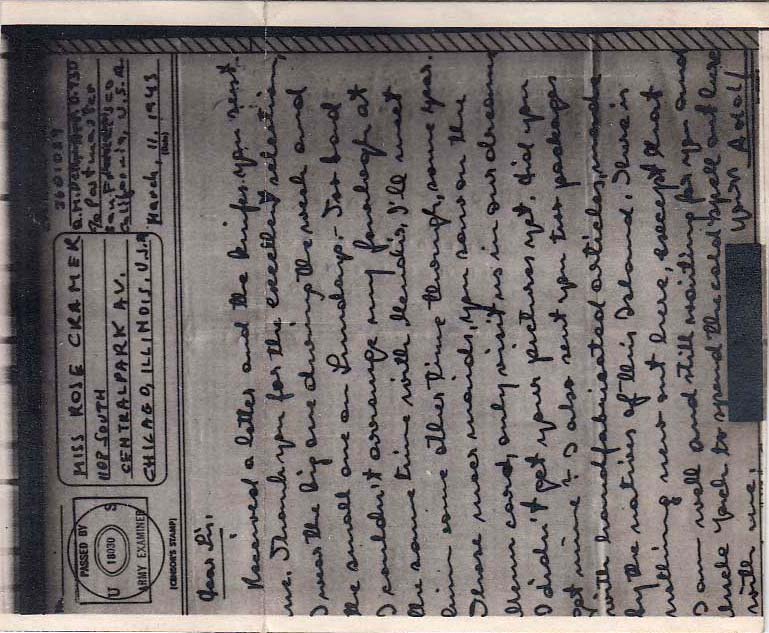 PASSED BY
U S
18030
ARMY EXAMINER
(CENSOR'S STAMP)
MISS ROSE CRAMER
1108 SOUTH
CENTRALPARK AV.
CHICAGO, ILLINOIS. U.S.A
3601089
A.P.O. 930
% Postmaster
San Francisco
California, U.S.A.
March, 11. 1943
(Date)
Dear Sis,
Received a letter and the knifes you sent
me. Thank you for the excellent selection,
I wear the big one during the week and
the small one on Sundays. - Too bad
I couldn't arrange my furlough at
the same time with Mendis, I'll meet
him some other time though, some year.
Those mermaids, you saw on the
card, only visit us in our dreams
I didn't get your pictures yet. Did you
get mine? I also sent you two packages
with handfabricated articles, made
by the natives of this Island. There is
nothing new out here, except that
I am well and still waiting for you and
uncle Jack to spend the cold spell out here
with me.
yours Adolf